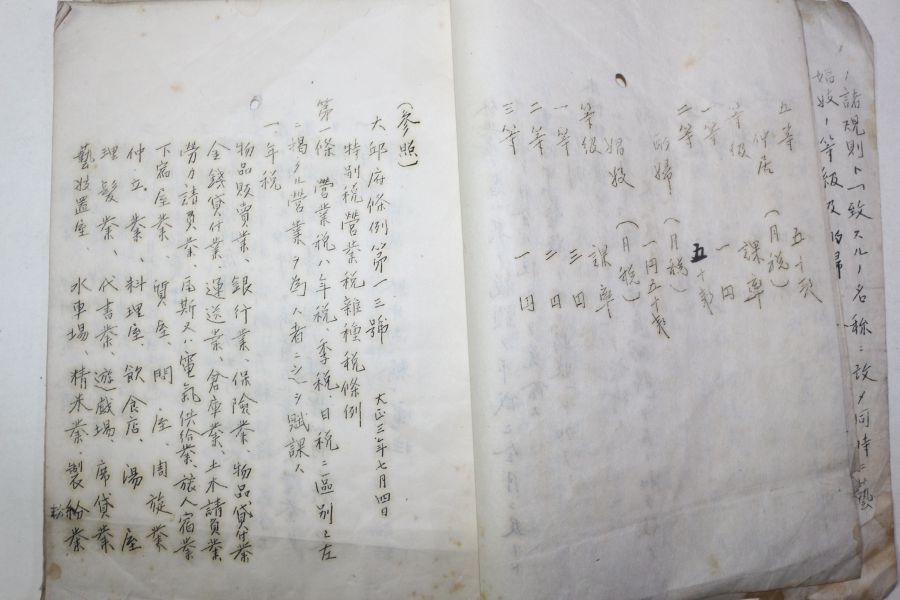 ノ諸規則ト一致スルノ名称ニ改メ同時ニ藝
娼妓ノ等級及酌婦
五等 五十戔
仲居 (月税)
等級 課率
一等 一円
二等 五十戔
酌婦 (月税)
一円五十戔
娼妓 (月税)
等級 課率
一等 三円
二等 二円
三等 一円
(参照)
大邱府條例第一三號 大正三年七月四日
特別税營業税雜種税條例
第一條 營業税ハ年税、季税、日税ニ區別シ左
ニ掲クル營業ヲ為ス者ニ之ヲ賦課ス
一、年税
物品販賣業、銀行業、保險業、物品貸付業
金錢貸付業、運送業、倉庫業、土木請負業
勞力請負業、瓦斯又ハ電氣供給業、旅人宿業
下宿屋業、質屋、問屋、周旋業
仲立業、料理屋、飲食店、湯屋
理髮業、代書業、遊戲場、席貸業
藝妓置屋、水車場、精米業、製粉業